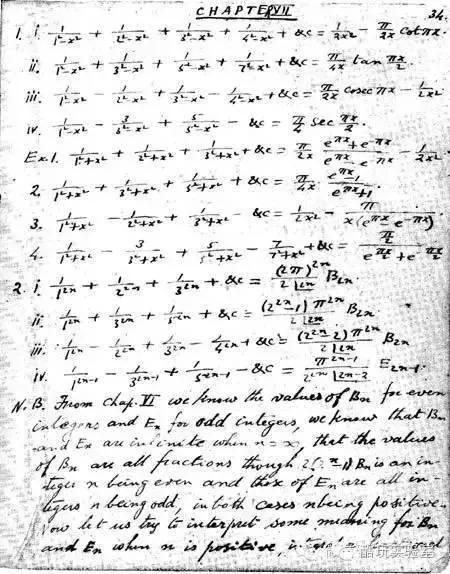 CHAPTER VII 34.
1. i. 1/(1²-x²) + 1/(2²-x²) + 1/(3²-x²) + 1/(4²-x²) + &c = 1/(2x²) - π/(2x) cot πx.
ii. 1/(1²-x²) + 1/(3²-x²) + 1/(5²-x²) + 1/(7²-x²) + &c = π/(4x) tan πx/2.
iii. 1/(1²-x²) - 1/(2²-x²) + 1/(3²-x²) - 1/(4²-x²) + &c = π/(2x) cosec πx - 1/(2x²)
iv. 1/(1²-x²) - 3/(3²-x²) + 5/(5²-x²) - &c = π/4 sec πx/2.
Ex.1. 1/(1²+x²) + 1/(2²+x²) + 1/(3²+x²) + &c = π/(2x) (e^πx + e^-πx)/(e^πx - e^-πx) - 1/(2x²)
2. 1/(1²+x²) + 1/(3²+x²) + 1/(5²+x²) + &c = π/(4x) · (e^πx - 1)/(e^πx + 1).
3. 1/(1²+x²) - 1/(2²+x²) + 1/(3²+x²) - &c = 1/(2x²) - π/(x(e^πx - e^-πx))
4. 1/(1²+x²) - 3/(3²+x²) + 5/(5²+x²) - 7/(7²+x²) + &c = (π/2)/(e^(πx/2) + e^(-πx/2))
2. i. 1/1^2n + 1/2^2n + 1/3^2n + &c = (2π)^2n/(2|2n) B₂ₙ
ii. 1/1^2n + 1/3^2n + 1/5^2n + &c = (2^2n-1)π^2n/(2|2n) B₂ₙ.
iii. 1/1^2n - 1/2^2n + 1/3^2n - 1/4^2n + &c = (2^2n-2)π^2n/(2|2n) B₂ₙ
iv. 1/1^2n-1 - 1/3^2n-1 + 1/5^2n-1 - &c = π^2n-1/(2^2n|2n-2) E₂ₙ₋₁.
N.B. From Chap. VI we know the values of Bₙ for even
integers and Eₙ for odd integers, we know that Bₙ
and Eₙ are infinite when n=∞, that the values
of Bₙ are all fractions though 2(2ⁿ-1)Bₙ is an in-
teger n being even and those of Eₙ are all in-
tegers n being odd, in both cases n being positive.
Now let us try to interpret some meaning for Bₙ
and Eₙ when n is positive
酷玩实验室